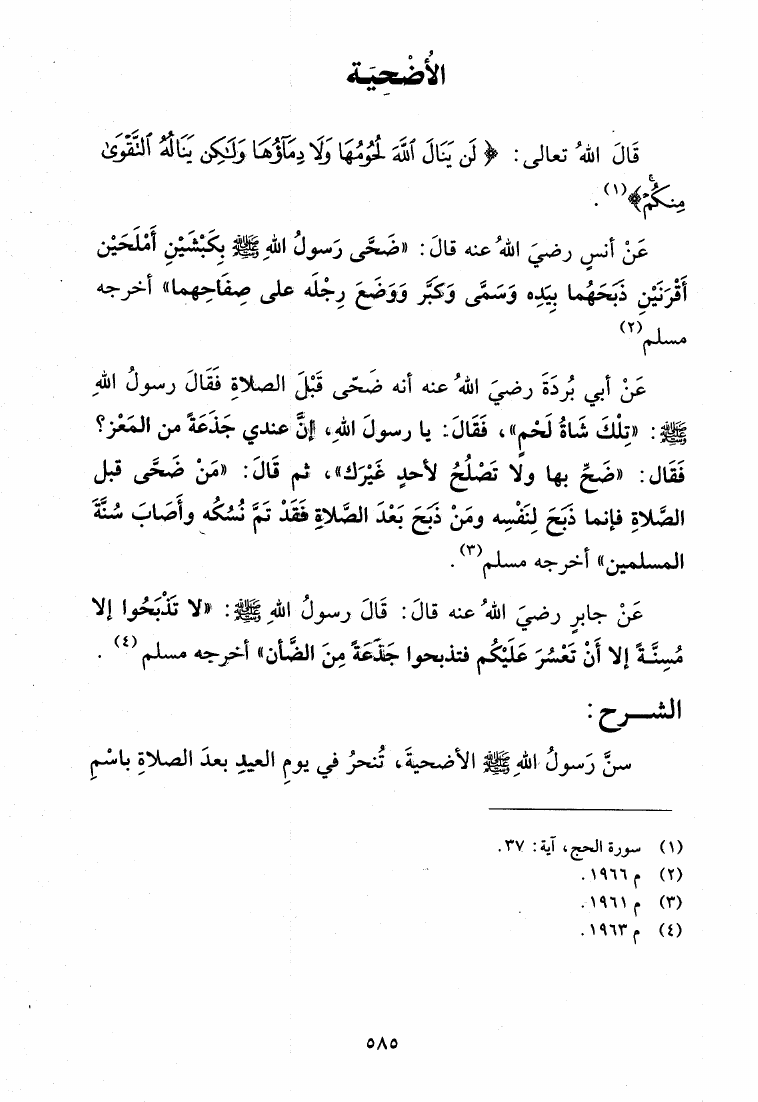 الأُضْحِيَة
قَالَ اللهُ تعالى: ﴿لَن يَنَالَ ٱللَّهَ لُحُومُهَا وَلَا دِمَآؤُهَا وَلَٰكِن يَنَالُهُ ٱلتَّقْوَىٰ
مِنكُمْۚ﴾(١).
عَنْ أنسٍ رضيَ اللهُ عنه قالَ: «ضَحَّى رَسولُ اللهِ ﷺ بِكَبْشَيْنِ أَمْلَحَيْن
أَقْرَنَيْنِ ذَبَحَهُما بِيَدِه وَسَمَّى وَكَبَّر وَوَضَعَ رِجْلَه على صِفَاحِهما» أخرجه
مسلم(٢)
عَنْ أبي بُردَةَ رضيَ اللهُ عنه أنه ضَحّى قَبْلَ الصلاةِ فَقَالَ رسولُ اللهِ
ﷺ: «تِلْكَ شَاةُ لَحْمٍ»، فَقَالَ: يا رسولَ اللهِ، إنَّ عندي جَذَعَةً من المَعْز؟
فَقَال: «ضَحِّ بها ولا تَصْلُحُ لأحدٍ غَيْرَك»، ثم قَالَ: «مَنْ ضَحَّى قبل
الصَّلاةِ فإنما ذَبَحَ لِنَفْسِه ومَنْ ذَبَحَ بَعْدَ الصَّلاةِ فَقَدْ تَمَّ نُسُكُه وأَصَابَ سُنَّةَ
المسلمين» أخرجه مسلم(٣).
عَنْ جابرٍ رضيَ اللهُ عنه قالَ: قَالَ رسولُ اللهِ ﷺ: «لا تَذْبَحُوا إلا
مُسِنَّةً إلا أَنْ تَعْسُرَ عَلَيْكُم فتذبحوا جَذَعَةً مِنَ الضَّأن» أخرجه مسلم(٤).
الشـرح:
سنَّ رَسولُ اللهِ ﷺ الأضحيةَ، تُنحرُ في يومِ العيدِ بعدَ الصلاةِ باسْمِ
(١) سورة الحج، آية: ٣٧.
(٢) م ١٩٦٦.
(٣) م ١٩٦١.
(٤) م ١٩٦٣.
٥٨٥